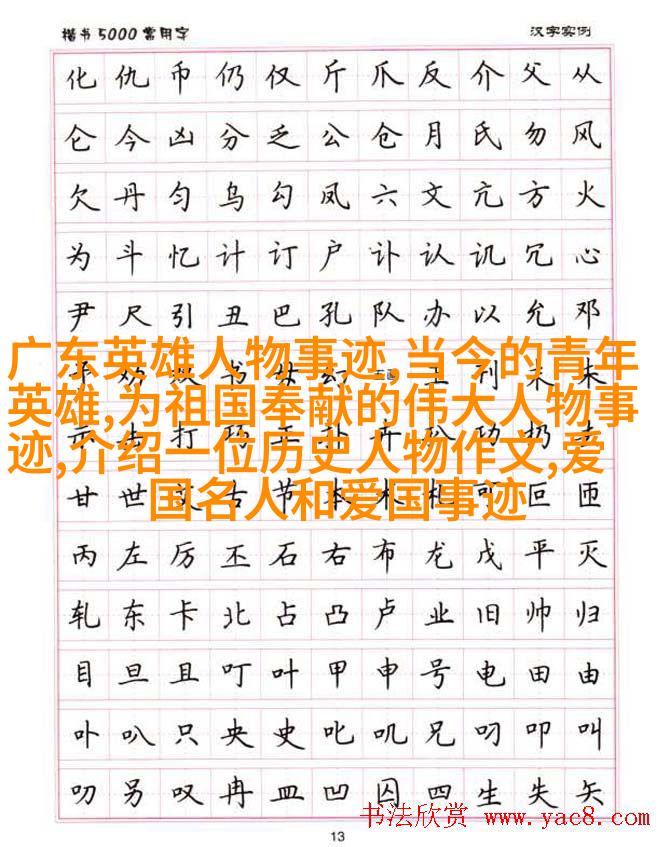 楷书5000常用字 汉字实例
化仇币仍仅斤爪反介父从
仑今凶分乏公仓月氏勿风
欠丹匀乌勾凤六文亢方火
为斗忆计订户讣认讥冗心
尹尺引丑巴孔队办以允邓
广东英雄人物事迹,当今的青年
英雄,为祖国奉献的伟大人物事
迹,介绍一位历史人物作文,爱
国名人和爱国事迹
甘世古节本可叵匝
丙左厉丕石右布龙戊平灭
轧东卡北占凸卢业旧帅归
目旦且叮叶甲申号电田由
卟叭只央史叱叽兄叼叩叫
叻另叹冉皿凹囚四生失矢
书法欣赏 www.yac8.com
13